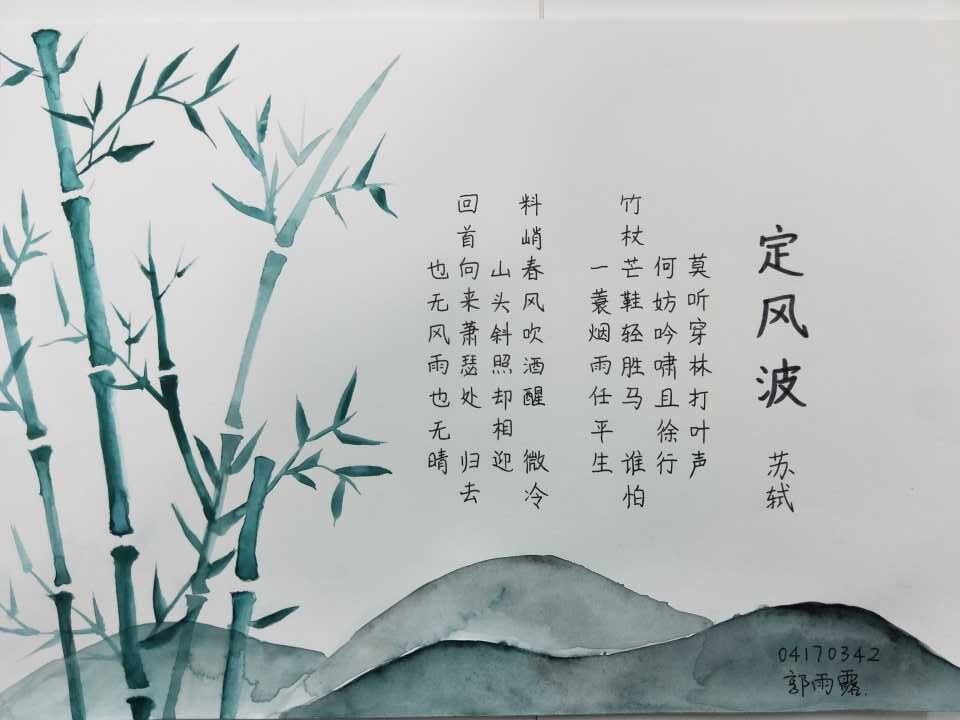 定风波
苏轼
莫听穿林打叶声
何妨吟啸且徐行
竹杖芒鞋轻胜马 谁怕
一蓑烟雨任平生
料峭春风吹酒醒 微冷
山头斜照却相迎
回首向来萧瑟处 归去
也无风雨也无晴
04170342
郭雨露